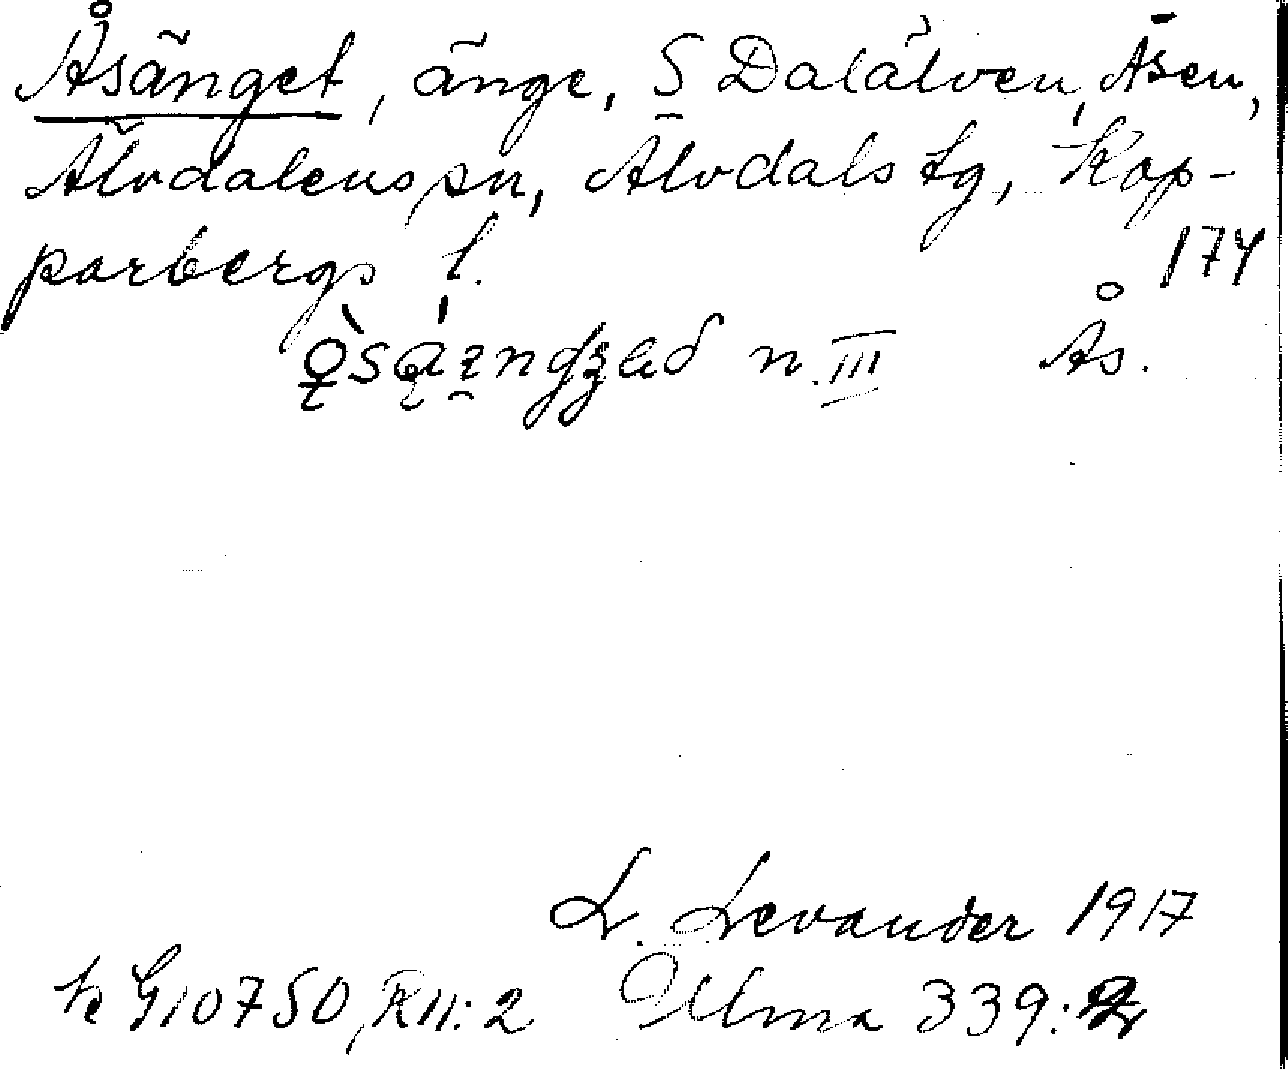 Åsänget, änge, S Dalälven, Åsen,
Älvdalens sn, Älvdals tg, Kop-
parbergs l.
174
n. III Ås.
L. Levander 1917
k G10750, R II: 2 Ulma 339: 2